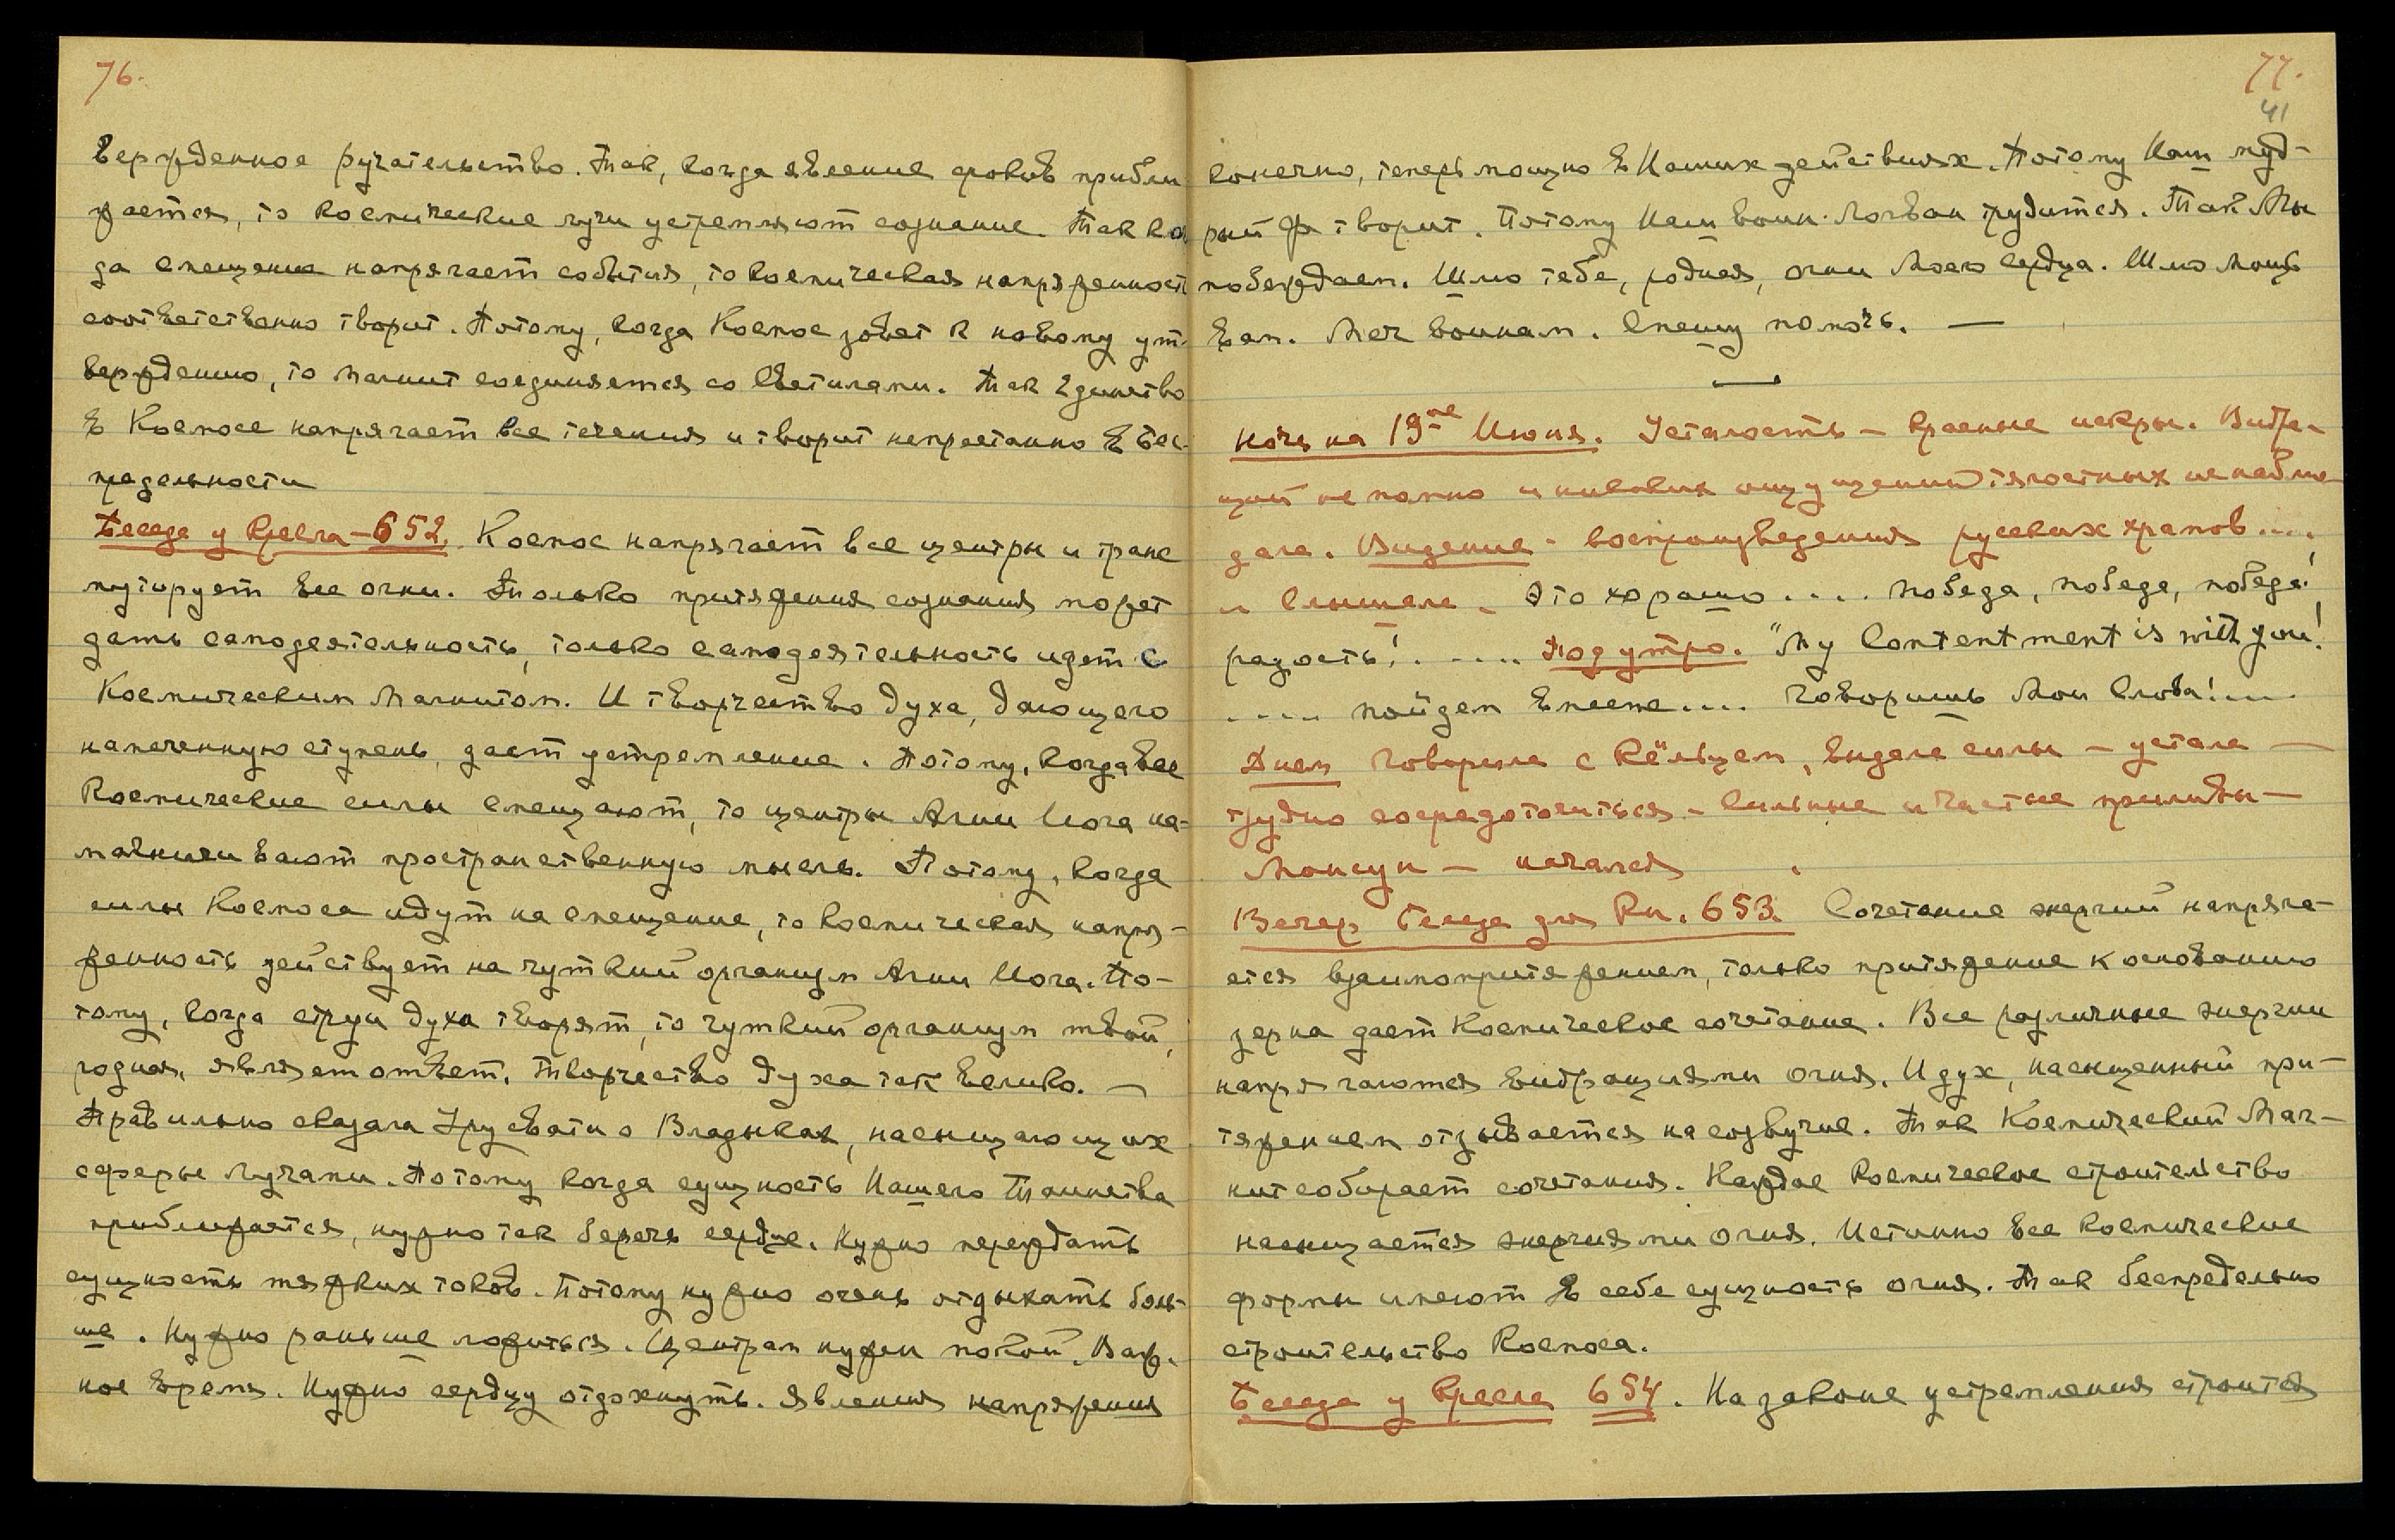 76.
вержденное ручательство. Так, когда явление сроков прибли
жается, то космические лучи устремляют сознание. Так ког
да смещение напрягает события, то космическая напряженность
соответственно творит. Потому, когда Космос зовет к новому ут-
верждению, то магнит соединяется со Светилами. Так Единство
в Космосе напрягает все течения и творит непрестанно в Бес-
предельности
Беседа у Кресла – 652. Космос напрягает все центры и транс
мутирует все огни. Только притяжения сознания может
дать самодеятельность, только самодеятельность идет с
Космическим Магнитом. И творчество духа, дающего
намеченную ступень, дает устремление. Потому, когда все
Космические силы смещают, то центры Агни Йога на-
магничивают пространственную мысль. Потому, когда
силы Космоса идут на смещение, то космическая напря-
женность действует на чуткий организм Агни Йога. По-
тому, когда струи духа творят, то чуткий организм твой,
родная, являет ответ. Творчество духа так велико. —
Правильно сказала Урусвати о Владыках, насыщающих
сферы лучами. Потому когда сущность Нашего Таинства
приближается, нужно так беречь сердце. Нужно переждать
сущность тяжких токов. Потому нужно очень отдыхать боль-
ше. Нужно раньше ложиться. Центрам нужен покой. Важ-
ное время. Нужно сердцу отдохнуть. Явления напряжения
77.
41
конечно, теперь мощно в Наших действиях. Потому Наш муд-
рый Ф творит. Потому Наш воин Логван трудится. Так Мы
побеждаем. Шлю тебе, родная, огни Моего сердца. Шлю Мощь
вам. Меч воинам. Спешу помочь. —
—
Ночь на 19ое Июня. Усталость – красные искры. Вибра-
ций не помню и никаких ощущений тягостных не наблю-
дала. Видение – воспроизведения русских храмов....
и Слышала – Это хорошо .... победа, победа, победа!
радость! ..... Под утро. "My Contentment is with you!
..... пойдем вместе.... Говоришь Мои Слова!....
Днем Говорила с Кёльцем, видела силы – устала —
трудно сосредоточиться – Сильные и частые приливы —
Монсун – начался
Вечер Беседа для Кн. 653. Сочетание энергий напряга-
ется взаимопритяжением, только притяжение к основанию
зерна дает Космическое сочетание. Все различные энергии
напрягаются вибрациями огня. И дух, насыщенный при-
тяжением отзывается на созвучие. Так Космический Маг-
нит собирает сочетания. Каждое Космическое строительство
насыщается энергиями огня. Истинно все космические
формы имеют в себе сущность огня. Так беспредельно
строительство Космоса.
Беседа у Кресла 654. На законе устремления строится